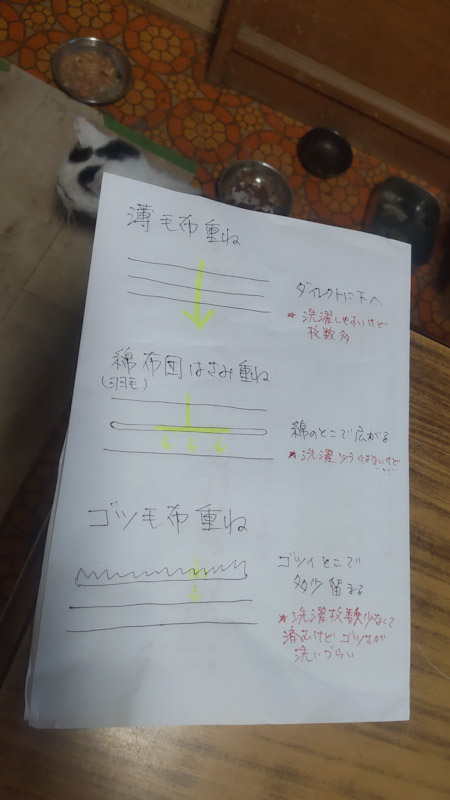 薄毛布重ね
ダイレクトに下へ
★洗濯しやすいけど
枚数多
綿布団はさみ重ね
(羽毛)
綿のとこで広がる
★洗濯ツラくはないけど
ゴツ毛布重ね
ゴツイとこで
多少留まる
★洗濯枚数少なくて
済むけどゴツさが
洗いづらい